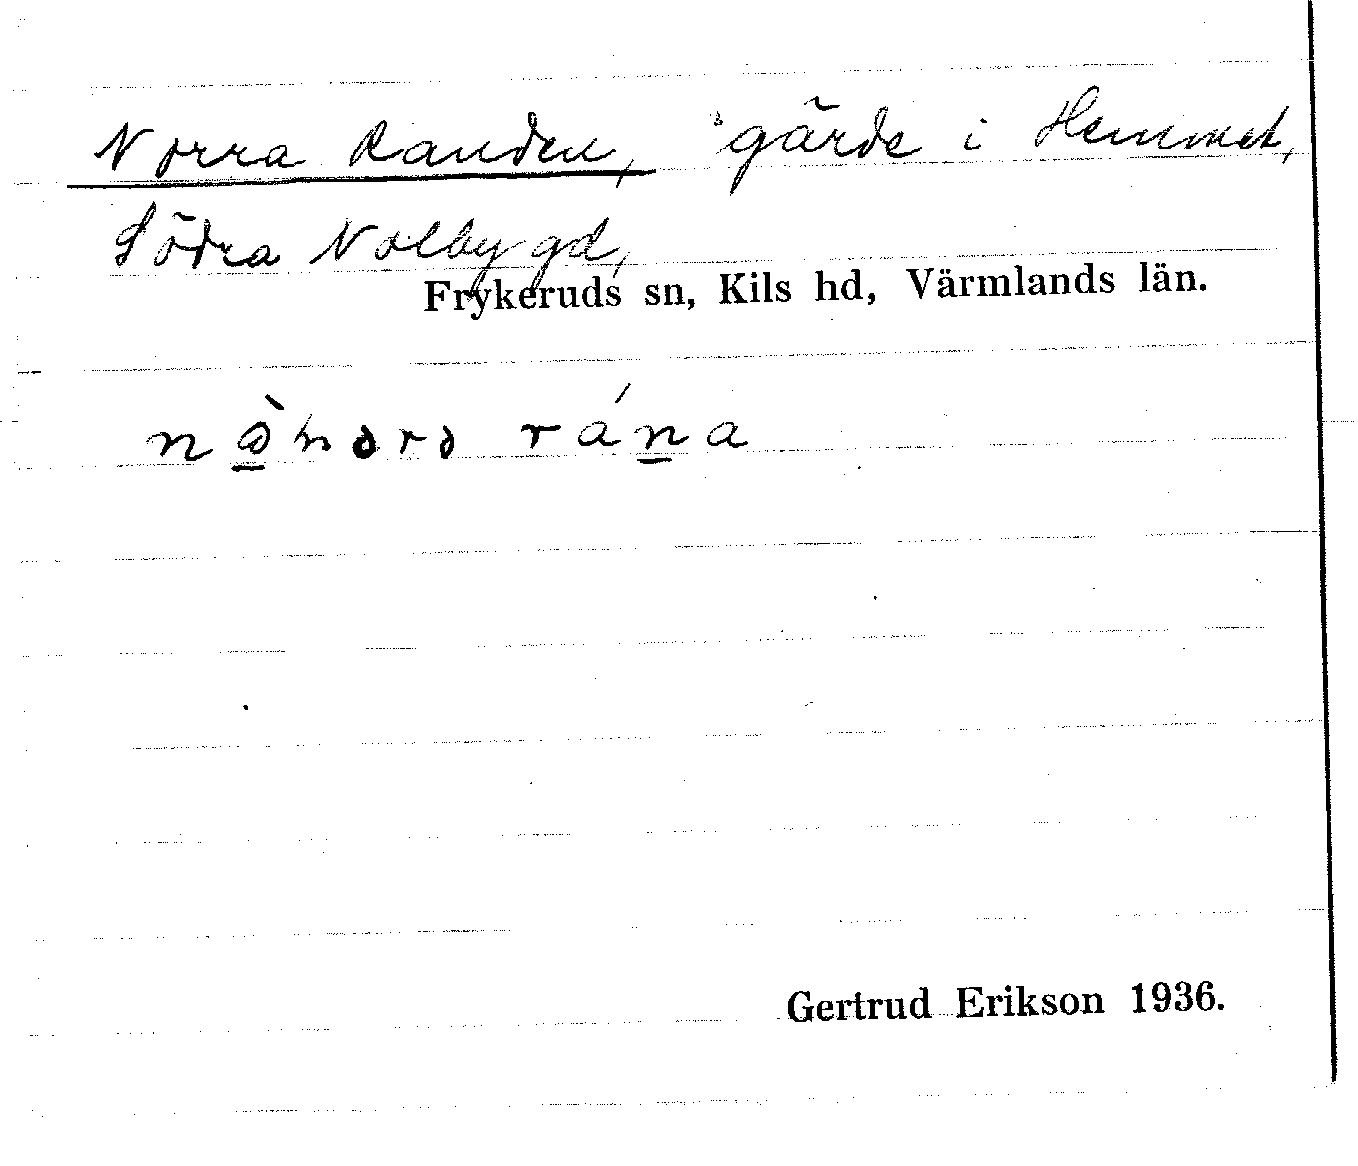 Norra Randen, gärde i Hemmet,
Södra Nolbygd,
Frykeruds sn, Kils hd, Värmlands län.
rána
Gertrud Erikson 1936.